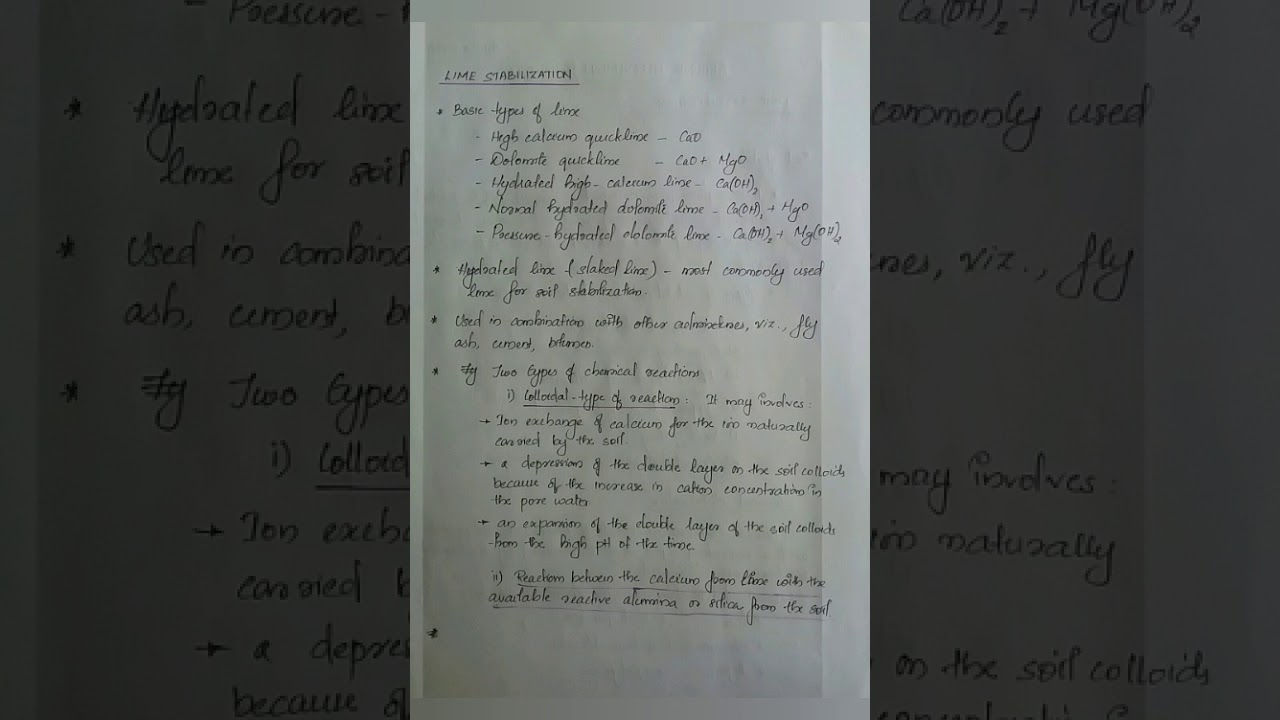 LIME STABILIZATION
* Basic types of lime
- High calcium quicklime - CaO
- Dolomite quicklime - CaO + MgO
- Hydrated high-calcium lime - Ca(OH)2
- Normal hydrated dolomite lime - Ca(OH)2 + MgO
- Pressure-hydrated dolomite lime - Ca(OH)2 + Mg(OH)2
* Hydrated lime (slaked lime) - most commonly used
lime for soil stabilization.
* Used in combination with other admixtures, viz., fly
ash, cement, bitumen.
* Two types of chemical reactions
i) Colloidal-type of reaction: It may involves:
→ Ion exchange of calcium for the ion naturally
carried by the soil.
→ a depression of the double layer on the soil colloids
because of the increase in cation concentration in
the pore water
→ an expansion of the double layer of the soil colloids
from the high pH of the time.
ii) Reaction between the calcium from lime with the
available reactive alumina or silica from the soil
*